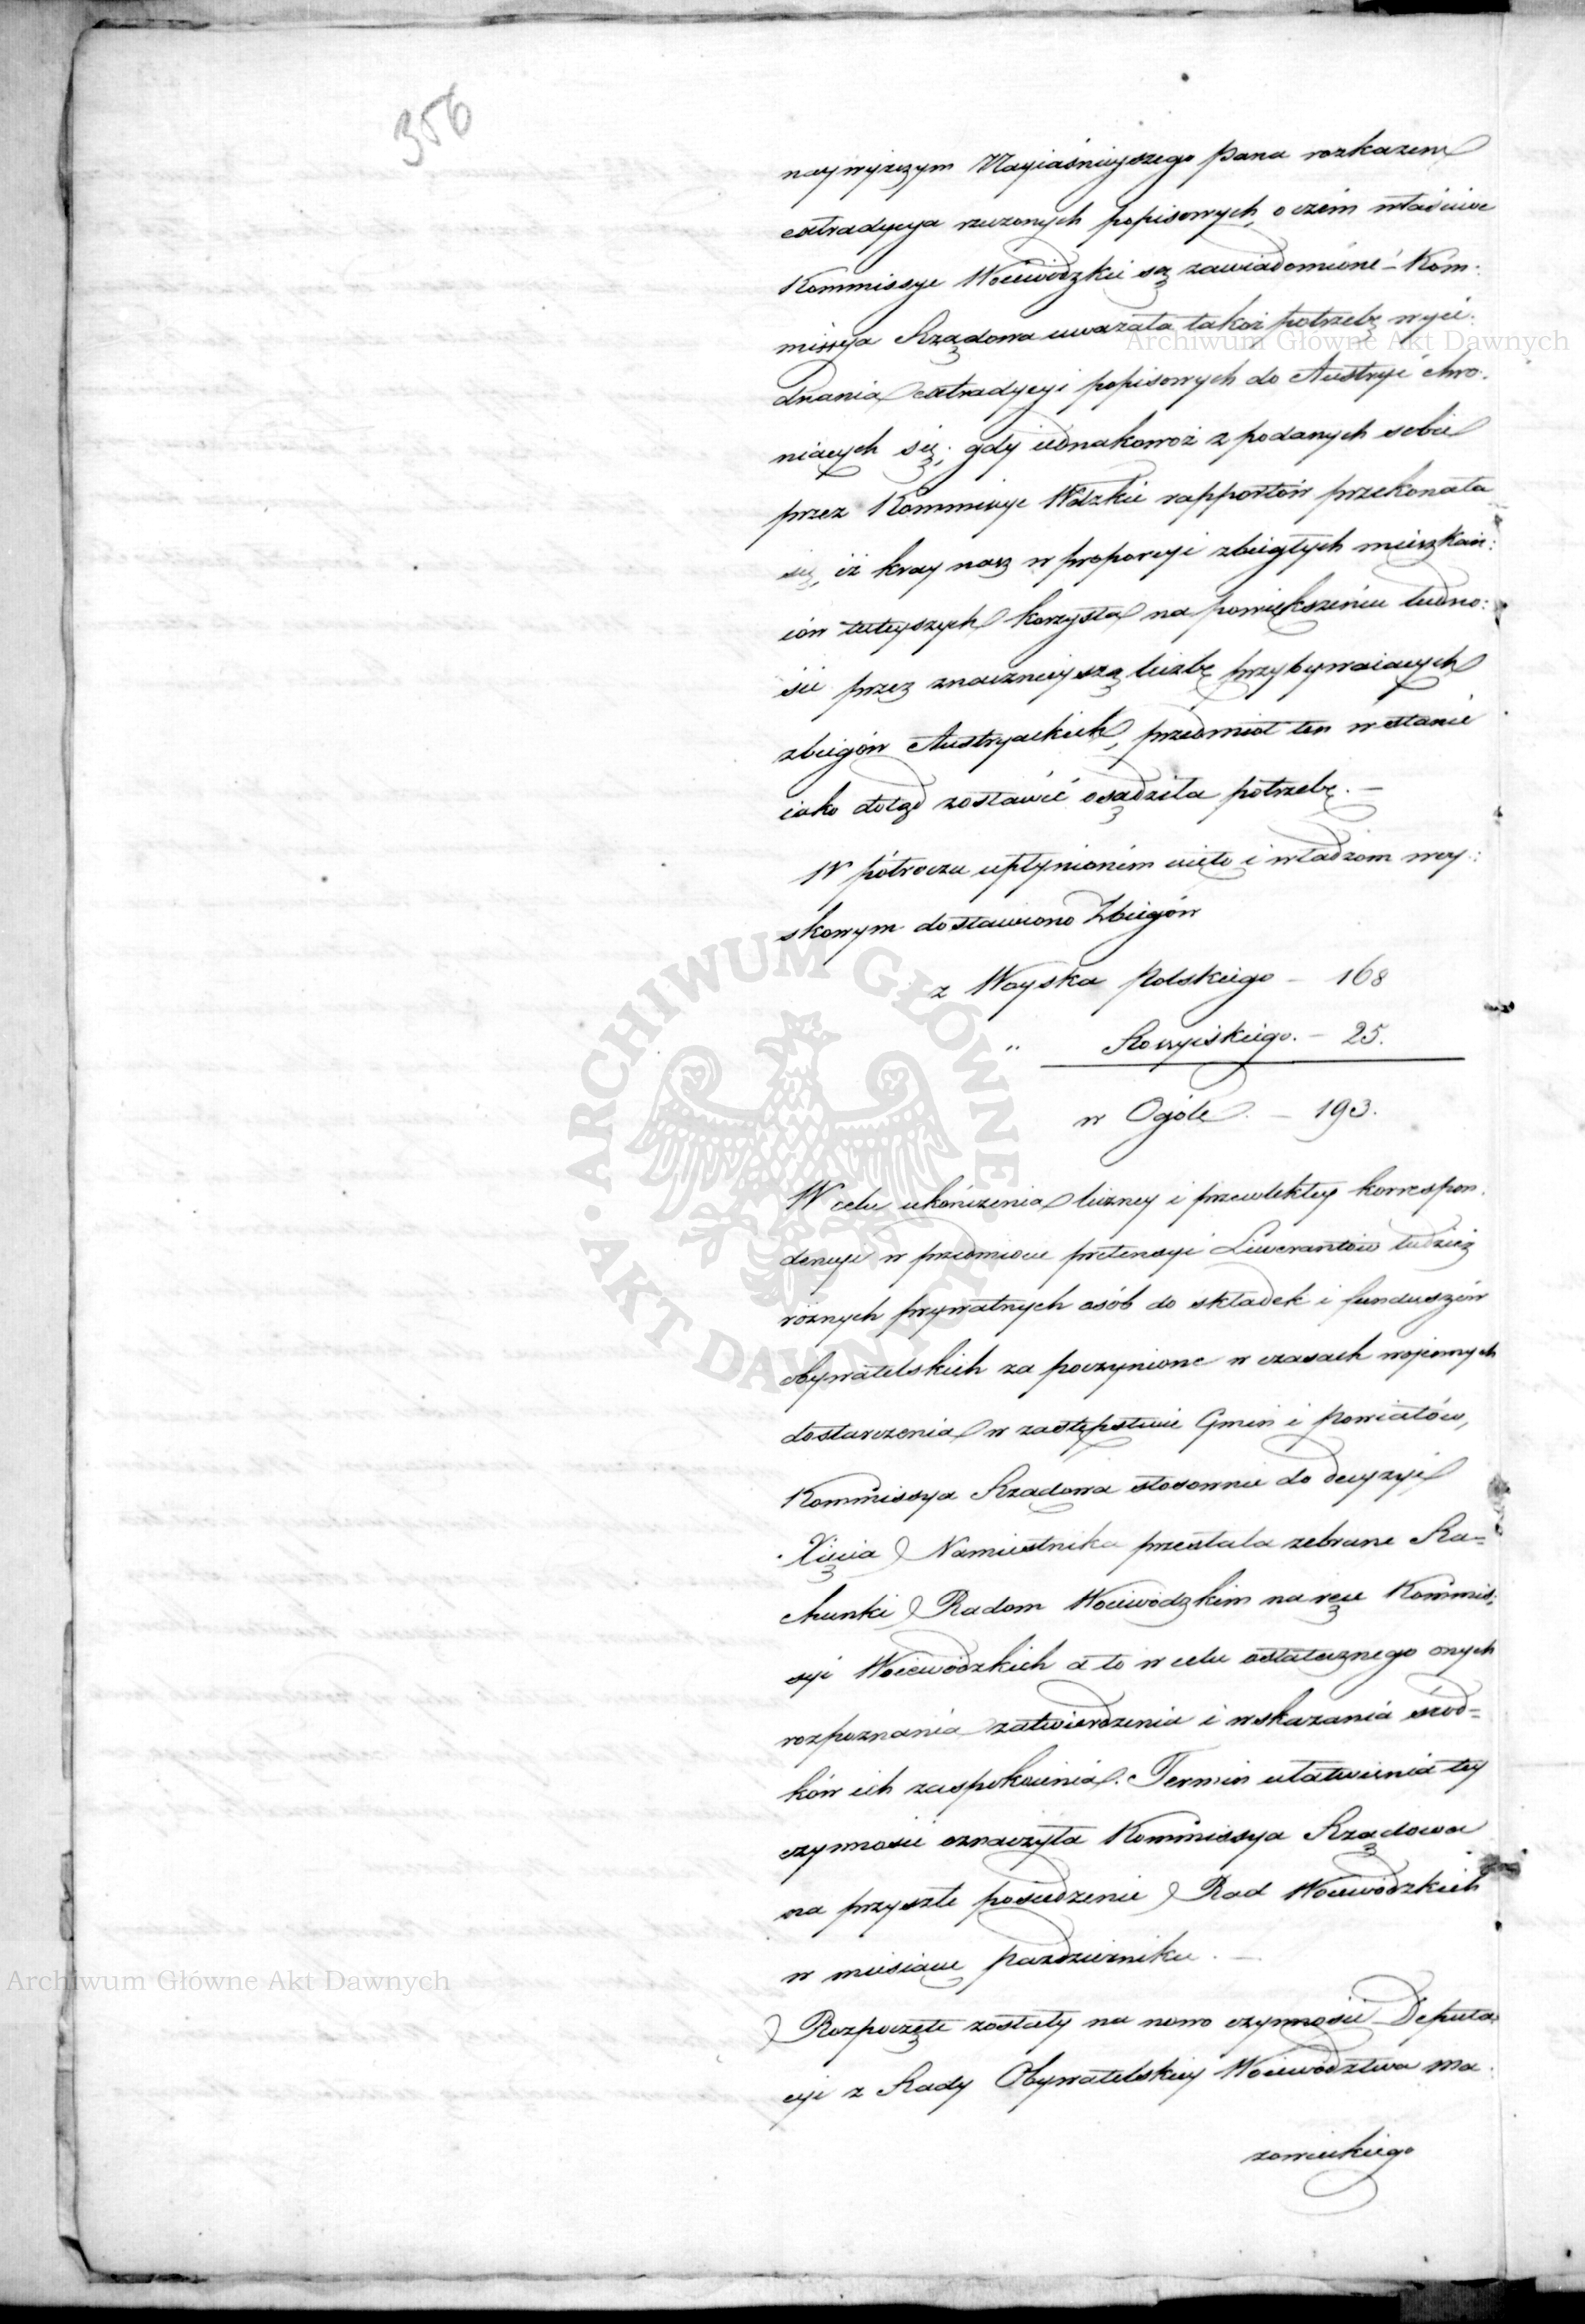 356
naywyższym Nayiaśnieyszego Pana rozkazem
extradycya rzeczonych popisowych, o czém właściwe
Kommissye Woiewódzkie są zawiadomione – Kom:
missya Rządowa uważała takoż potrzebę wyie:
dnania extradycyi popisowych do Austryi chro:
niących się; gdy iednakowoż z podanych sobie
przez Kommissye Wdzkie rapportów przekonała
się, iż kray nasz w proporcyi zbiegłych mieszkań:
ców tuteyszych korzysta na powiększeniu ludno:
ści przez znacznieyszą liczbę przybywaiących
zbiegów Austryackich, przedmiot ten w stanie
iako dotąd zostawić osądziła potrzebę. –
W półroczu upłynioném uięto i władzom woy:
skowym dostawiono Zbiegów
z Woyska Polskiego – 168
" Rossyiskiego. – 25.
w Ogóle. – 193.
W celu ukończenia liczney i przewlekłey korrespon:
dencyi w przedmiocie pretensyi Liwerantów tudzież
różnych prywatnych osób do składek i funduszów
obywatelskich za poczynione w czasach wojennych
dostarczenia w zastępstwie Gmin i powiatów,
Kommissya Rządowa stosownie do decyzyi
Xięcia Namiestnika przesłała zebrane Ra=
chunki Radom Woiewódzkim na ręce Kommis:
syi Woiewódzkich a to w celu ostatecznego onych
rozpoznania zatwierdzenia i wskazania środ=
ków ich zaspokoienia. Termin ułatwienia tey
czynności oznaczyła Kommissya Rządowa
na przyszłe posiedzenie Rad Woiewódzkich
w miesiącu październiku. –
Rozpoczęte zostały na nowo czynności Deputa:
cyi z Rady Obywatelskiey Woiewództwa Ma:
zowieckiego
Archiwum Główne Akt Dawnych
ARCHIWUM GŁÓWNE • AKT DAWNYCH •
Archiwum Główne Akt Dawnych